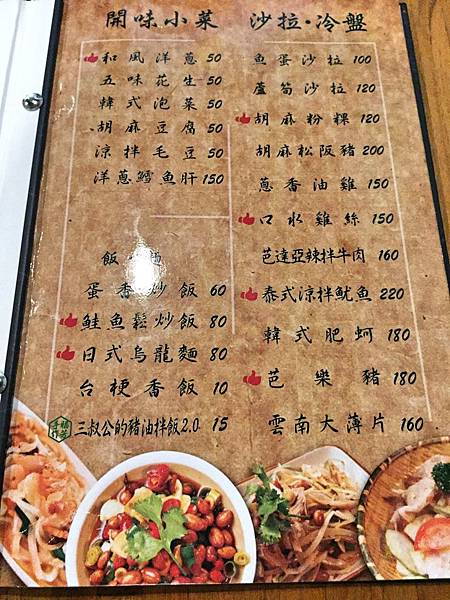 開味小菜
和風洋蔥 50
五味花生 50
韓式泡菜 50
胡麻豆腐 50
涼拌毛豆 50
洋蔥鱈魚肝 150
飯·麵
蛋香炒飯 60
鮭魚鬆炒飯 80
日式烏龍麵 80
台梗香飯 10
三叔公的豬油拌飯2.0 15
沙拉·冷盤
魚蛋沙拉 100
蘆筍沙拉 120
胡麻粉粿 120
胡麻松阪豬 200
蔥香油雞 150
口水雞絲 150
芭達亞辣拌牛肉 160
泰式涼拌魷魚 220
韓式肥蚵 180
芭樂豬 180
雲南大薄片 160